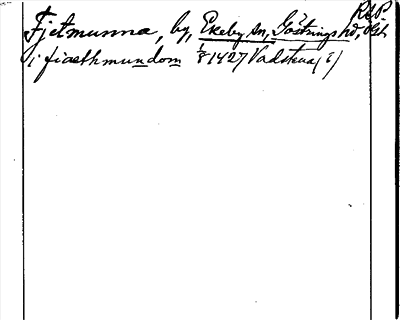 RAP.
Fjetmunna, by, Ekeby sn, Göstrings hd, Ög.
i fiaethmundom 1/8 1427 Vadstena (?)